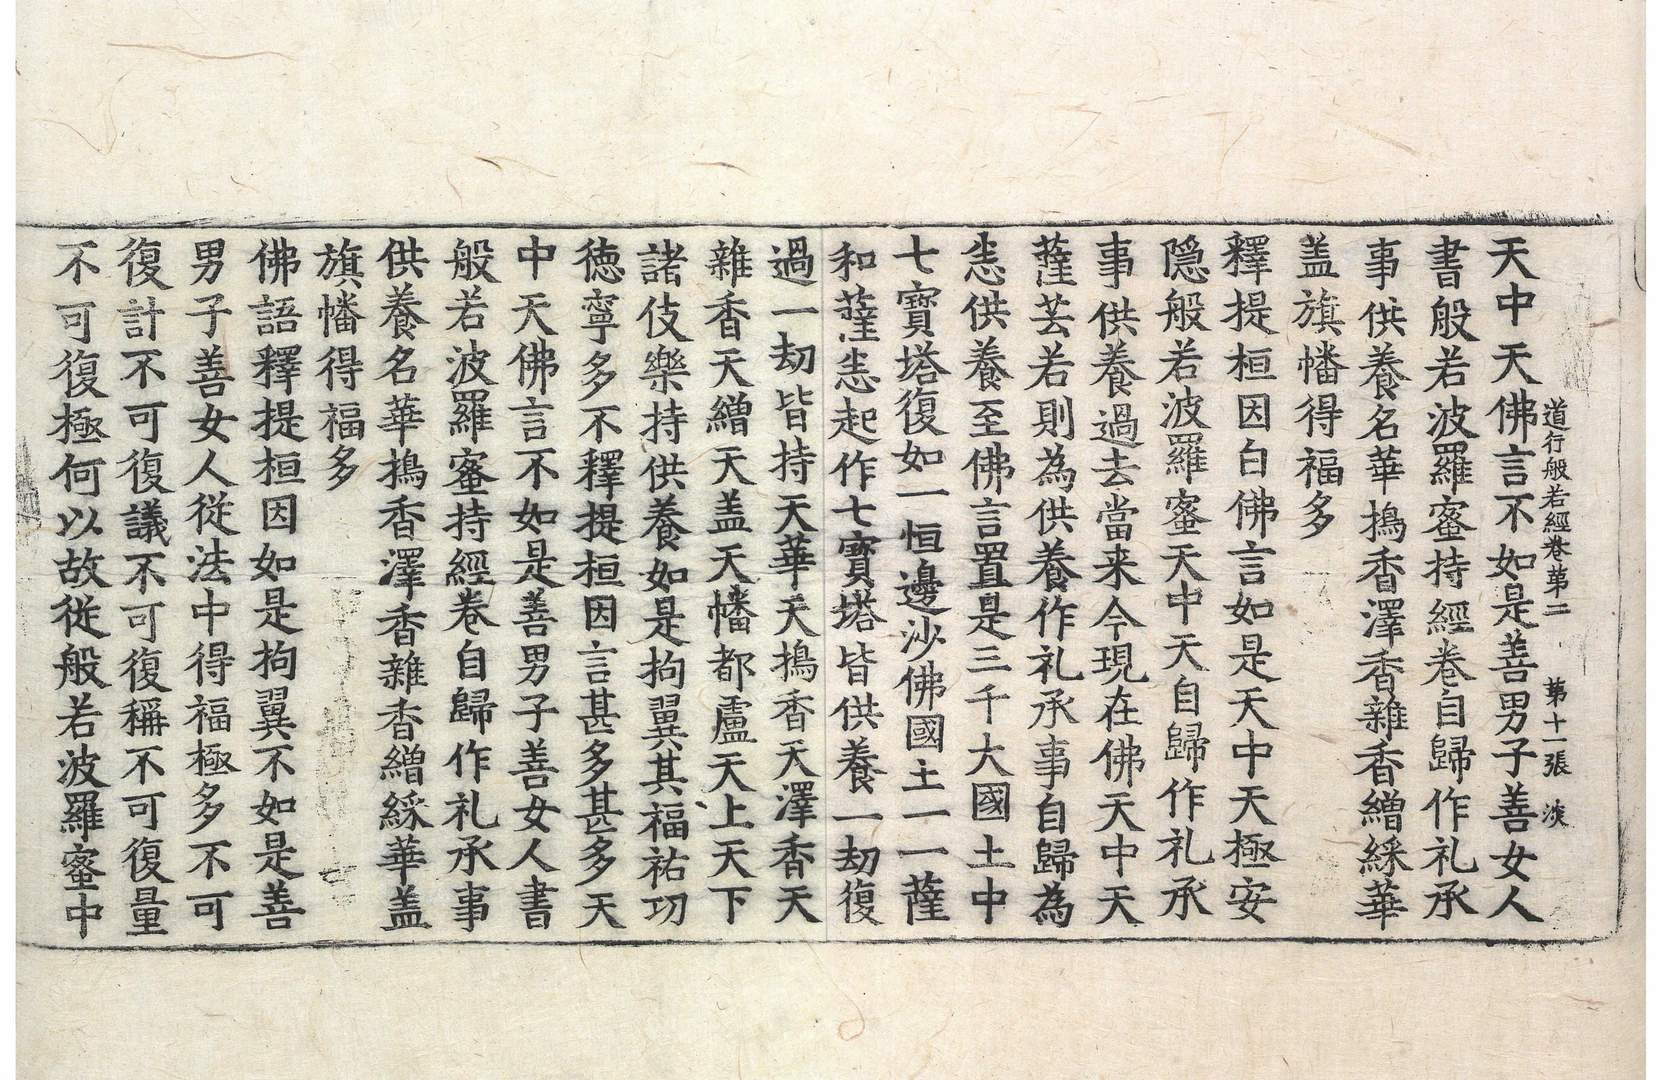 道行般若經卷第二 第十一張 淡
天中天佛言不如是善男子善女人
書般若波羅蜜持經卷自歸作礼承
事供養名華擣香澤香雜香繒綵華
盖旗幡得福多
釋提桓因白佛言如是天中天極安
隠般若波羅蜜天中天自歸作礼承
事供養過去當来今現在佛天中天
薩芸若則為供養作礼承事自歸為
恙供養至佛言置是三千大國土中
七寶塔復如一恒邊沙佛國土一一薩
和薩恙起作七寶塔皆供養一劫復
過一劫皆持天華天擣香天澤香天
雜香天繒天盖天幡都盧天上天下
諸伎樂持供養如是拘翼其福祐功
徳寧多不釋提桓因言甚多甚多天
中天佛言不如是善男子善女人書
般若波羅蜜持經卷自歸作礼承事
供養名華擣香澤香雜香繒綵華盖
旗幡得福多
佛語釋提桓因如是拘翼不如是善
男子善女人從法中得福極多不可
復計不可復議不可復稱不可復量
不可復極何以故從般若波羅蜜中